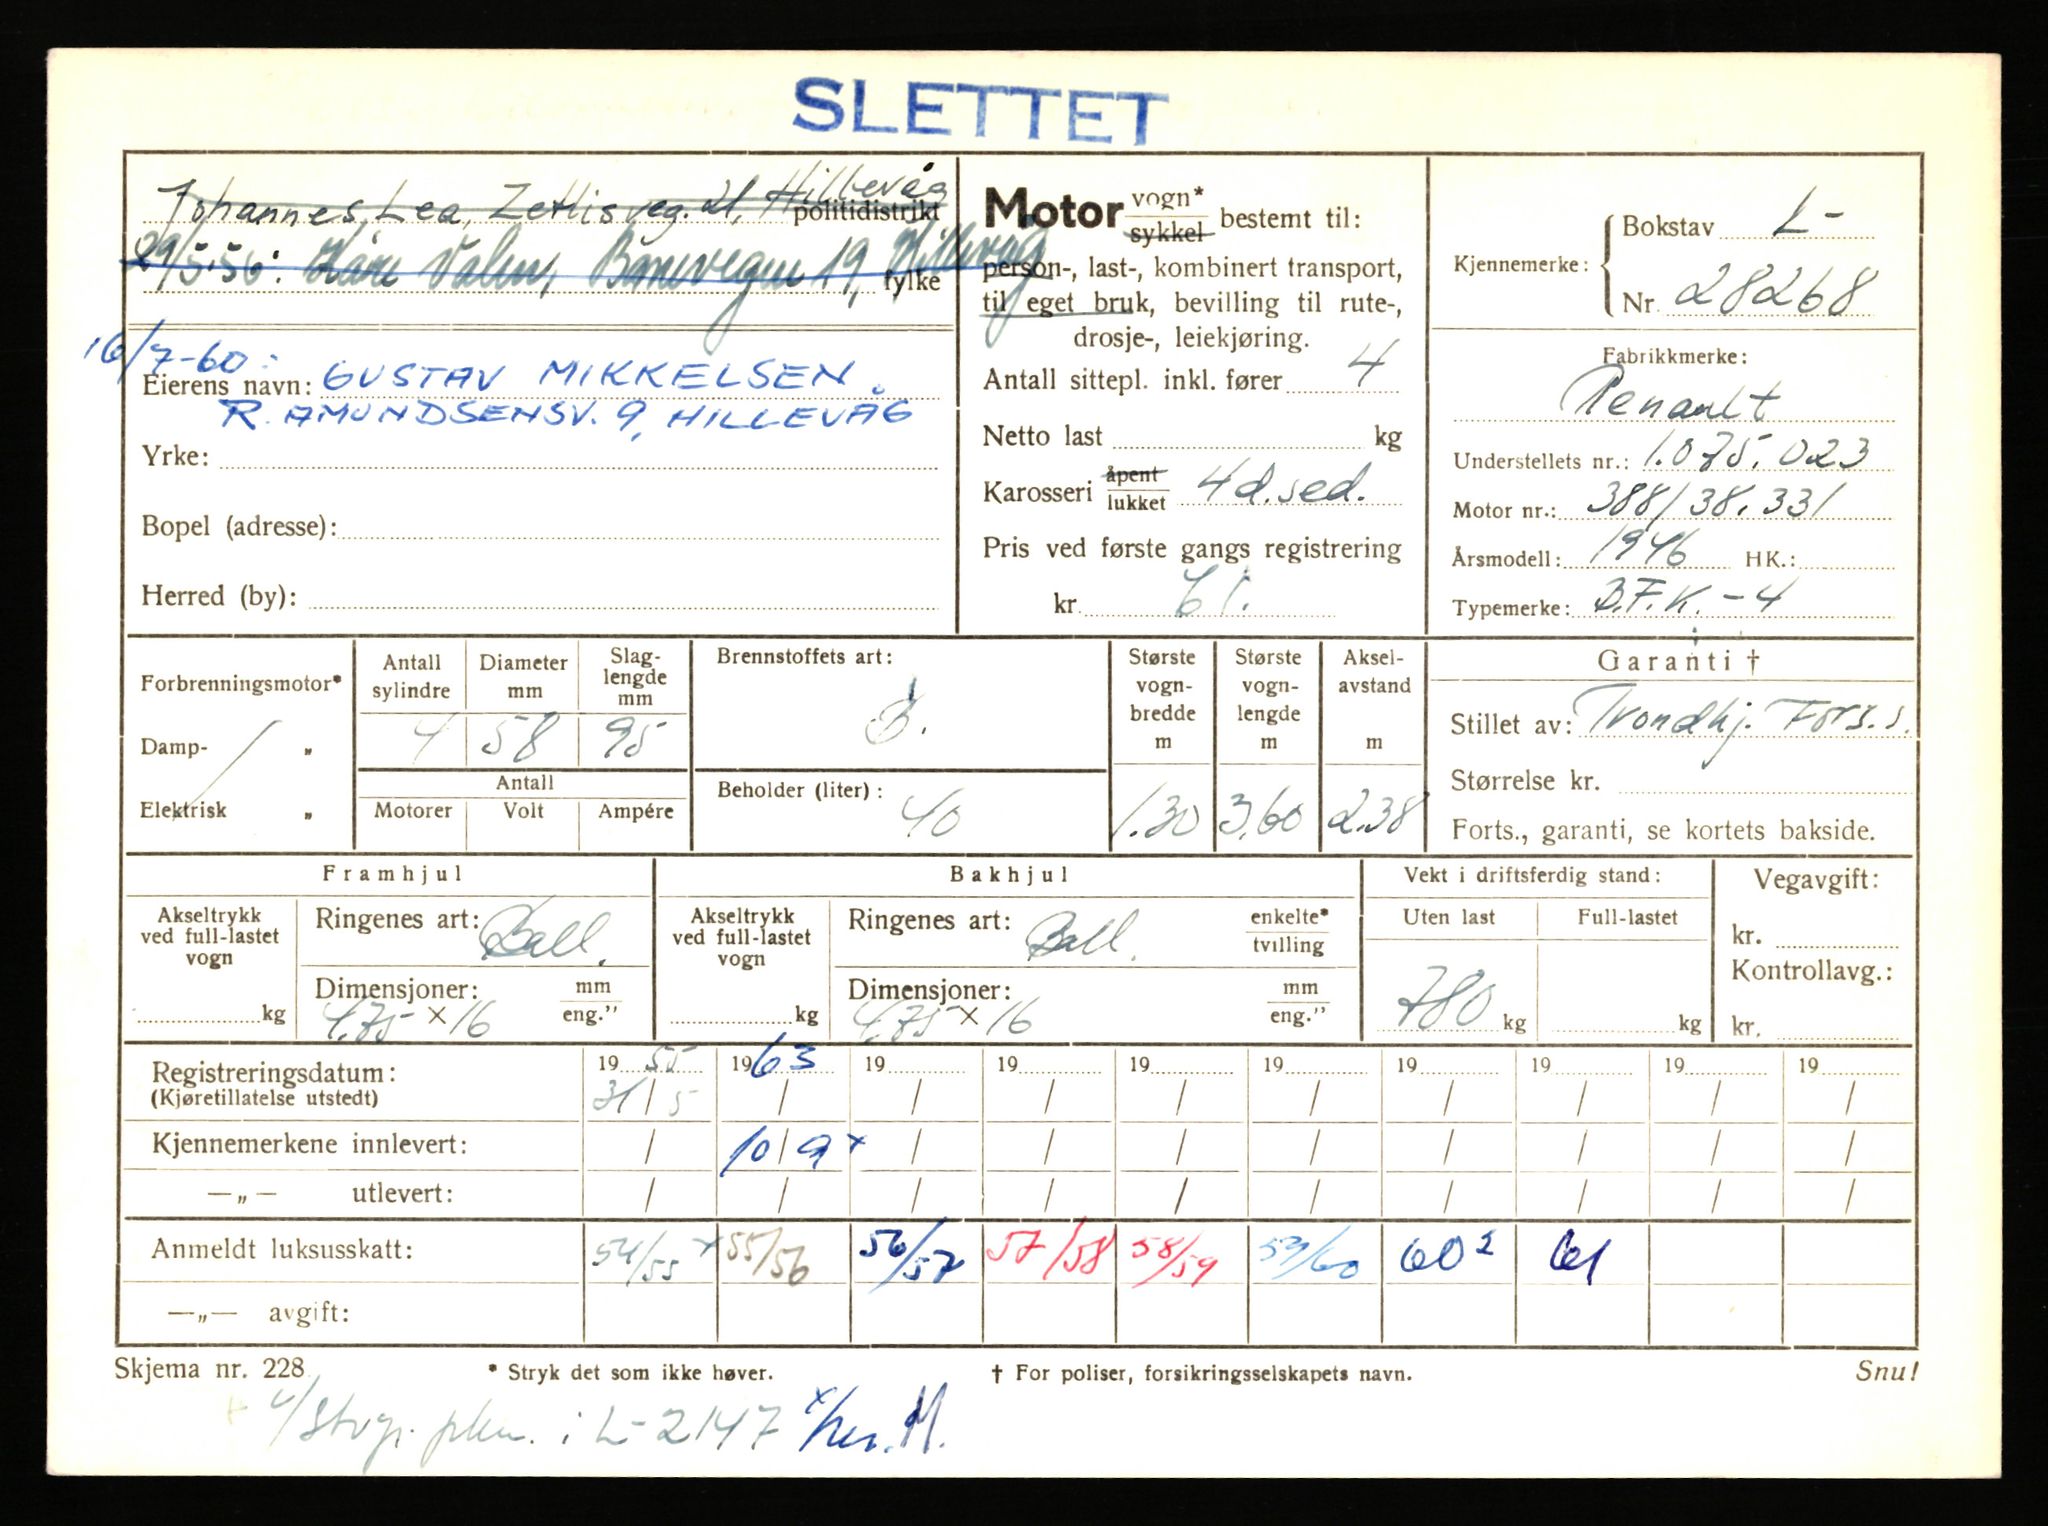 SLETTET
Johannes Lea, Zetlisveg. 21, Hillevåg
politidistrikt
29/5.56: Kåre Valen, 19, Hillevåg
fylke
16/7-60:
Eierens navn: GUSTAV MIKKELSEN.
R. AMUNDSENSV. 9, HILLEVÅG
Yrke:
Bopel (adresse):
Herred (by):
Motor vogn* sykkel bestemt til:
person-, last-, kombinert transport,
til eget bruk, bevilling til rute-,
drosje-, leiekjøring.
Antall sittepl. inkl. fører 4
Netto last kg
Karosseri åpent lukket 4 d. sed.
Pris ved første gangs registrering
kr.
Kjennemerke: Bokstav L-
Nr. 28268
Fabrikkmerke:
Renault
Understellets nr.: 1.075.023
Motor nr.: 388/38.331
Årsmodell: 1946 HK.:
Typemerke: B.F.K.-4
Forbrenningsmotor*
Damp- "
Elektrisk "
Antall sylindre Diameter mm Slag-lengde mm
4 58 95
Antall
Motorer Volt Ampére
Brennstoffets art:
B.
Beholder (liter):
40
Største vogn-bredde m Største vogn-lengde m Aksel-avstand m
1.30 3,60 2.38
Garanti †
Stillet av: Trondhj. Fors.s.
Størrelse kr.
Forts., garanti, se kortets bakside.
Framhjul
Akseltrykk ved full-lastet vogn
kg
Ringenes art: Ball.
Dimensjoner: mm eng."
4.75 × 16
Bakhjul
Akseltrykk ved full-lastet vogn
kg
Ringenes art: Ball. enkelte* tvilling
Dimensjoner: mm eng."
4.75 × 16
Vekt i driftsferdig stand:
Uten last Full-lastet
780 kg kg
Vegavgift:
kr.
Kontrollavg.:
kr.
Registreringsdatum: 19 55 19 63 19 19 19 19 19 19 19 19
(Kjøretillatelse utstedt) 31/5 / / / / / / / / /
Kjennemerkene innlevert: / 10/9 x / / / / / / / /
—„— utlevert: / / / / / / / / / /
Anmeldt luksusskatt: 54/55 x 55/56 56/57 57/58 58/59 59/60 60² 61
—„— avgift:
Skjema nr. 228. * Stryk det som ikke høver. † For poliser, forsikringsselskapets navn. Snu!
i L-2147